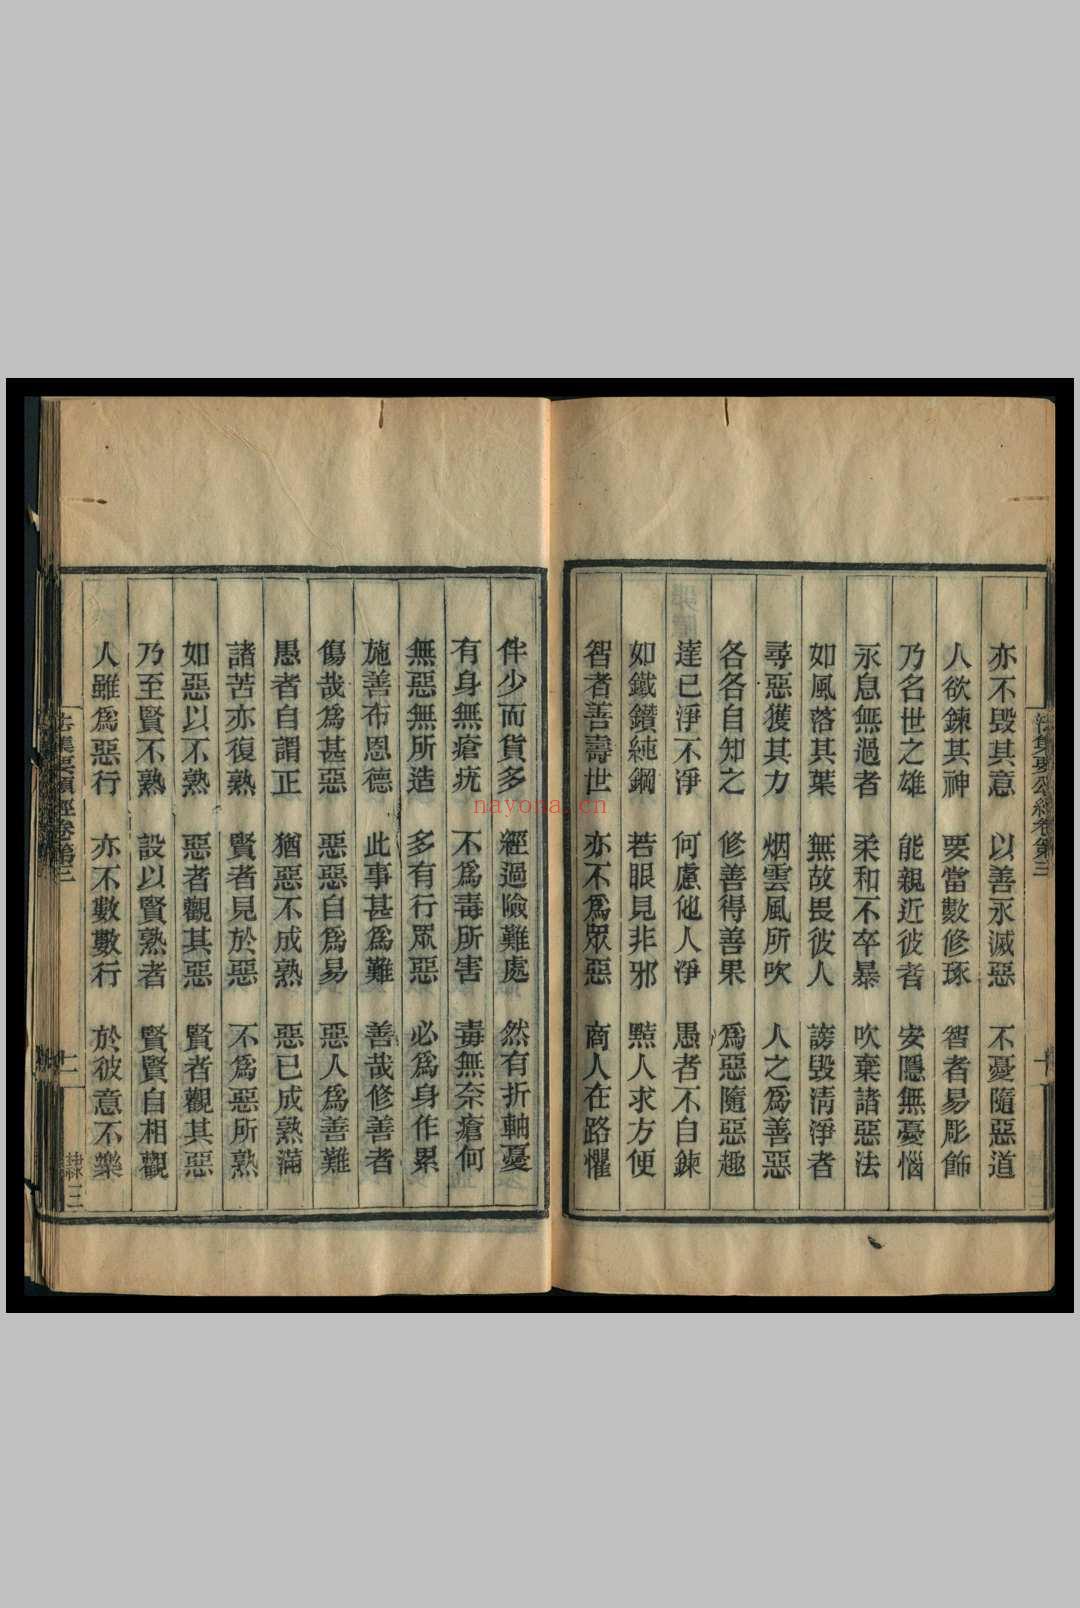 法集要頌經卷第三
十
亦不毀其意 以善永滅惡 不憂隨惡道
人欲鍊其神 要當數修琢 智者易彫飾
乃名世之雄 能親近彼者 安隱無憂惱
永息無過者 柔和不卒暴 吹棄諸惡法
如風落其葉 無故畏彼人 謗毀清淨者
尋惡獲其力 烟雲風所吹 人之為善惡
各各自知之 修善得善果 為惡隨惡趣
達己淨不淨 何慮他人淨 愚者不自鍊
如鐵鑽純鋼 若眼見非邪 黠人求方便
智者善壽世 亦不為眾惡 商人在路懼
伴少而貨多 經過險難處 然有折軸憂
有身無瘡疣 不為毒所害 毒無奈瘡何
無惡無所造 多有行眾惡 必為身作累
施善布恩德 此事甚為難 善哉修善者
傷哉為甚惡 惡惡自為易 惡人為善難
愚者自謂正 猶惡不成熟 惡已成熟滿
諸苦亦復熟 賢者見於惡 不為惡所熟
如惡以不熟 惡者觀其惡 賢者觀其惡
乃至賢不熟 設以賢熟者 賢賢自相觀
人雖為惡行 亦不數數行 於彼意不樂
法集要頌經卷第三
十一
隸三
nayona.cn